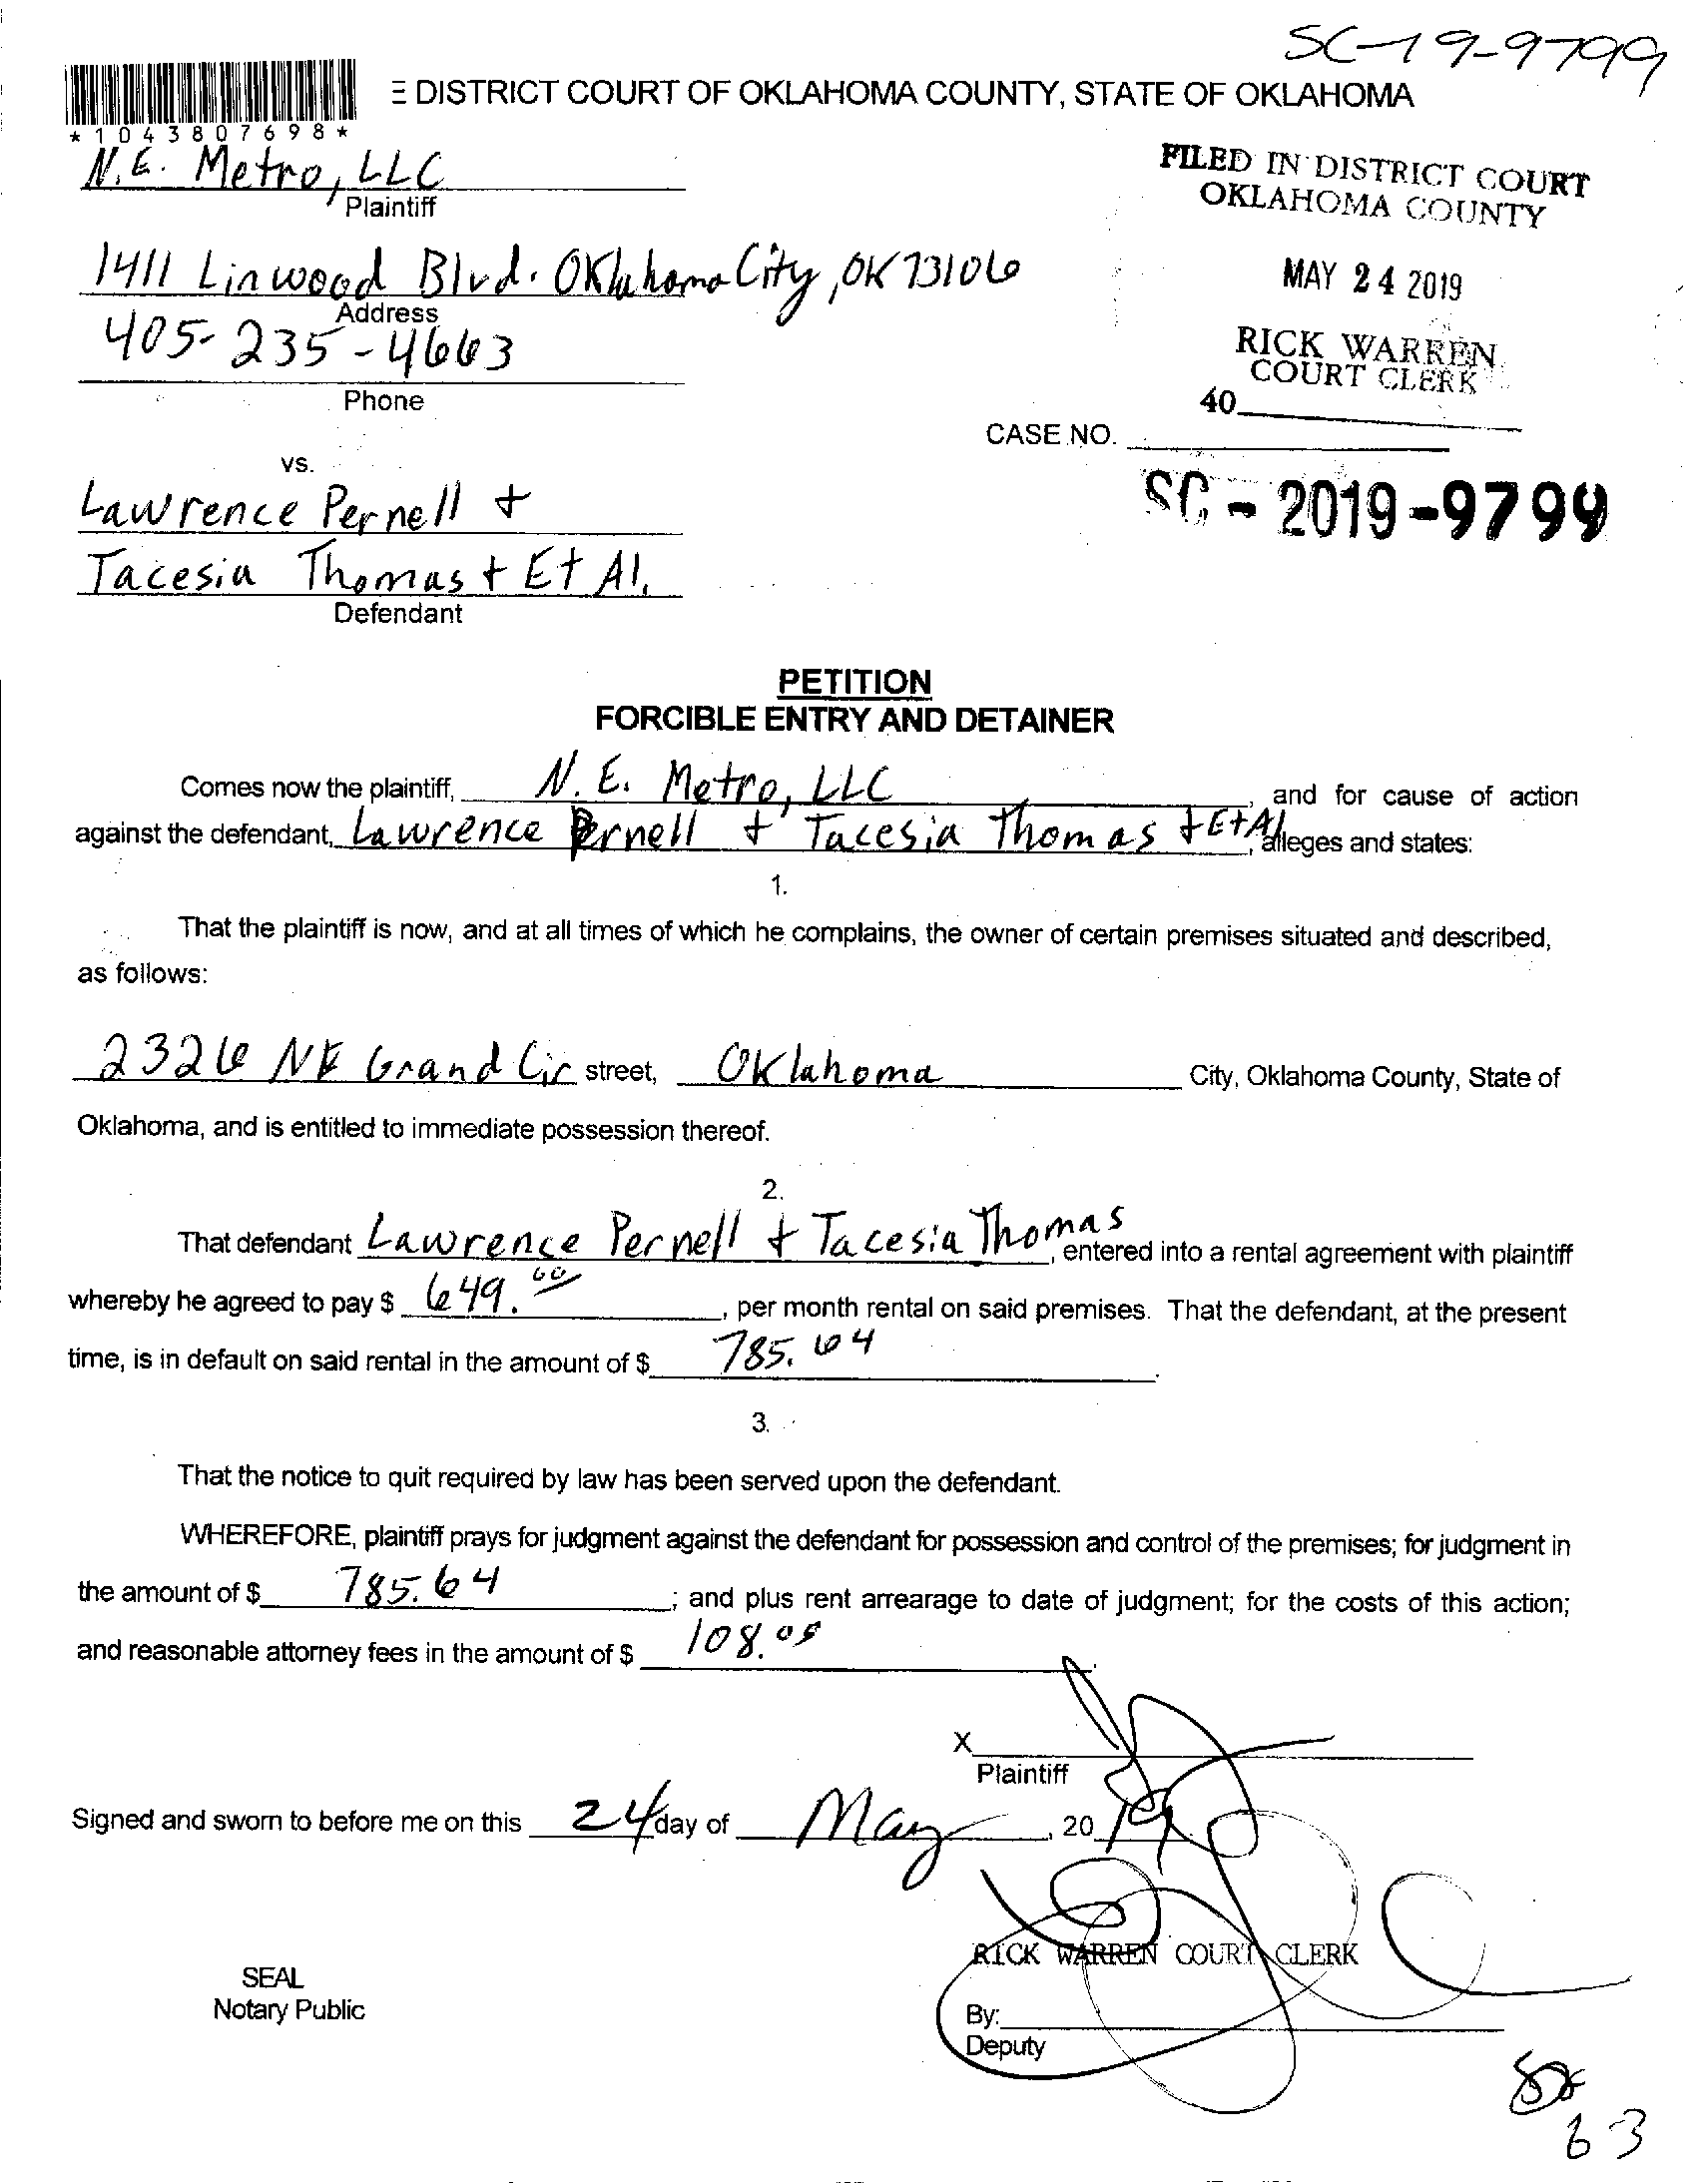 SC-19-9799
E DISTRICT COURT OF OKLAHOMA COUNTY, STATE OF OKLAHOMA
*1043807698*
N.E. Metro, LLC
Plaintiff
FILED IN DISTRICT COURT
OKLAHOMA COUNTY
1411 Linwood Blvd. Oklahoma City, OK 73106
Address
MAY 24 2019
405-235-4663
Phone
RICK WARREN
COURT CLERK
40
CASE NO.
vs.
SC - 2019-9799
Lawrence Pernell +
Tacesia Thomas + Et Al.
Defendant
PETITION
FORCIBLE ENTRY AND DETAINER
Comes now the plaintiff, N. E. Metro, LLC, and for cause of action
against the defendant, Lawrence Pernell + Tacesia Thomas + Et Al, alleges and states:
1.
That the plaintiff is now, and at all times of which he complains, the owner of certain premises situated and described,
as follows:
2326 NE Grand Cir street, Oklahoma City, Oklahoma County, State of
Oklahoma, and is entitled to immediate possession thereof.
2.
That defendant Lawrence Pernell + Tacesia Thomas, entered into a rental agreement with plaintiff
whereby he agreed to pay $ 649.00, per month rental on said premises. That the defendant, at the present
time, is in default on said rental in the amount of $ 785.64.
3.
That the notice to quit required by law has been served upon the defendant.
WHEREFORE, plaintiff prays for judgment against the defendant for possession and control of the premises; for judgment in
the amount of $ 785.64; and plus rent arrearage to date of judgment; for the costs of this action;
and reasonable attorney fees in the amount of $ 108.05.
X
Plaintiff
Signed and sworn to before me on this 24 day of May, 2019
RICK WARREN COURT CLERK
SEAL
Notary Public
By:
Deputy
63